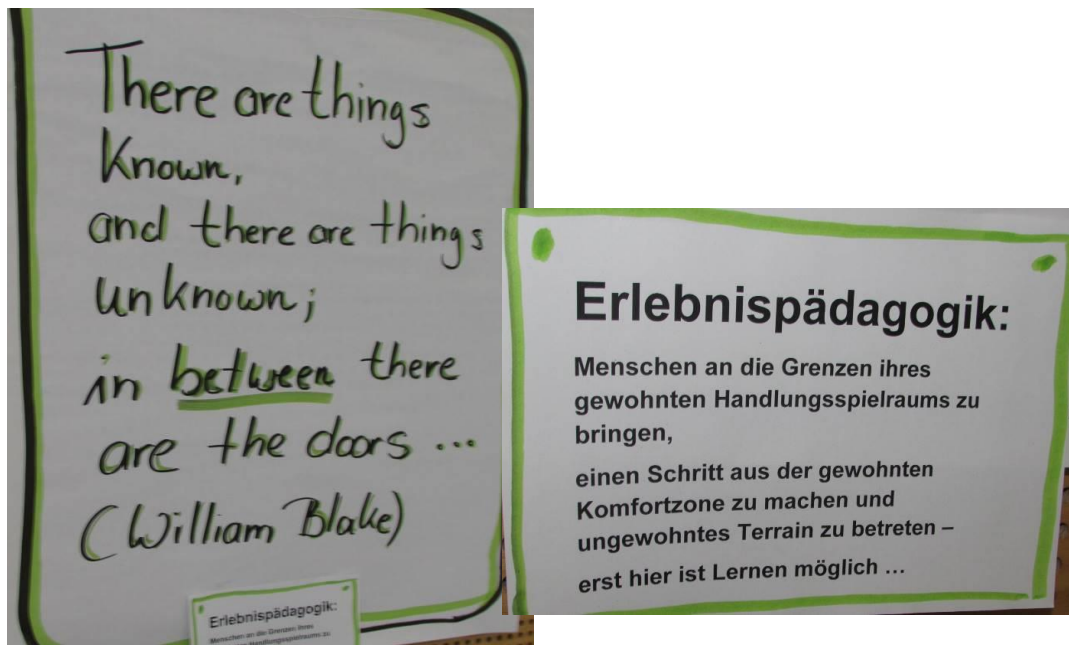 There are things
Known,
and there are things
unknown;
in between there
are the doors ...
(William Blake)
Erlebnispädagogik:
Menschen an die Grenzen ihres
Handlungsspielraums zu
Erlebnispädagogik:
Menschen an die Grenzen ihres
gewohnten Handlungsspielraums zu
bringen,
einen Schritt aus der gewohnten
Komfortzone zu machen und
ungewohntes Terrain zu betreten –
erst hier ist Lernen möglich ...